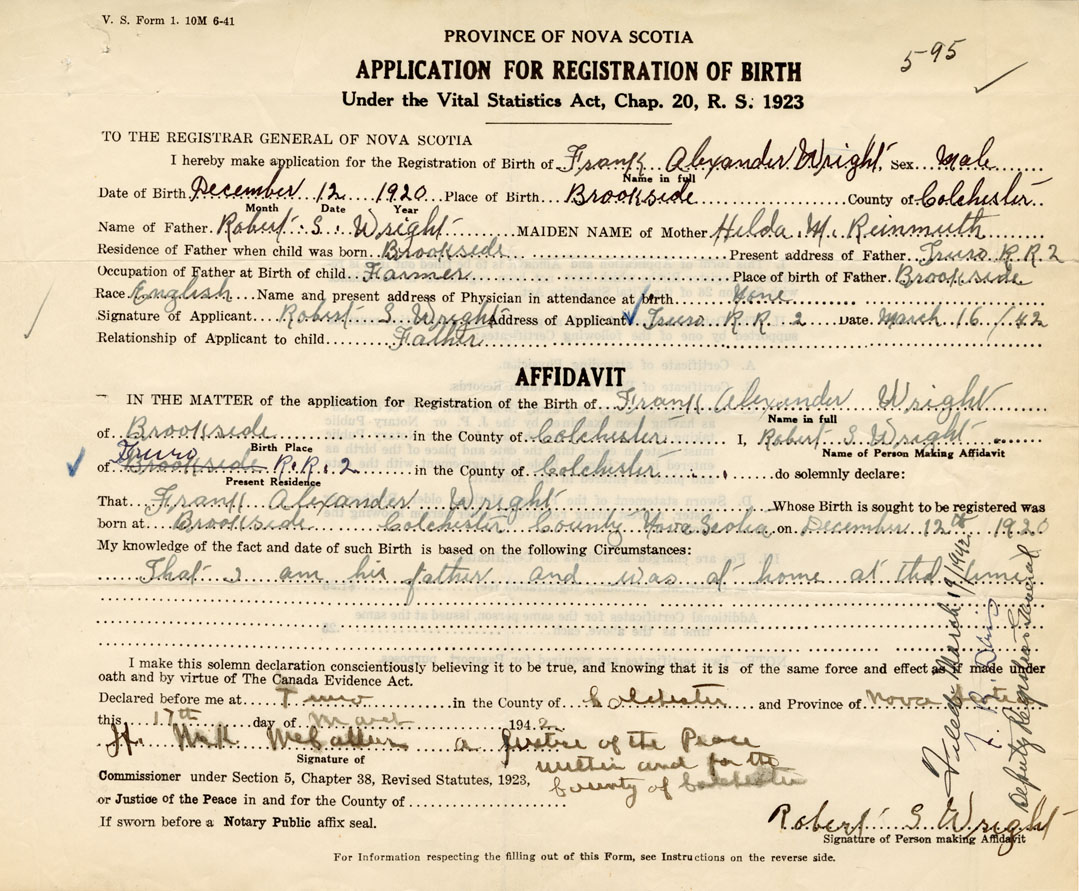 V. S. Form 1. 10M 6-41
PROVINCE OF NOVA SCOTIA
595
APPLICATION FOR REGISTRATION OF BIRTH
Under the Vital Statistics Act, Chap. 20, R. S. 1923
TO THE REGISTRAR GENERAL OF NOVA SCOTIA
I hereby make application for the Registration of Birth of Frank Alexander Wright Sex Male
Name in full
Date of Birth December 12 1920 Place of Birth Brookside County of Colchester
Month Date Year
Name of Father Robert S. Wright MAIDEN NAME of Mother Hilda M. Reinmuth
Residence of Father when child was born Brookside Present address of Father Truro R.R.2
Occupation of Father at Birth of child Farmer Place of birth of Father Brookside
Race English Name and present address of Physician in attendance at birth None
Signature of Applicant Robert S. Wright Address of Applicant Truro R.R. 2 Date March 16/42
Relationship of Applicant to child Father
AFFIDAVIT
IN THE MATTER of the application for Registration of the Birth of Frank Alexander Wright
Name in full
of Brookside in the County of Colchester I, Robert S. Wright
Birth Place Name of Person Making Affidavit
Truro
of Brookside R.R.2 in the County of Colchester do solemnly declare:
Present Residence
That Frank Alexander Wright Whose Birth is sought to be registered was
born at Brookside Colchester County Nova Scotia on December 12th 1920
My knowledge of the fact and date of such Birth is based on the following Circumstances:
That I am his father and was at home at that time
I make this solemn declaration conscientiously believing it to be true, and knowing that it is of the same force and effect as if made under
oath and by virtue of The Canada Evidence Act.
Declared before me at Truro in the County of Colchester and Province of Nova Scotia
this 17th day of March 1942
a Justice of the Peace
within and for the
County of Colchester
Signature of
Commissioner under Section 5, Chapter 38, Revised Statutes, 1923,
or Justice of the Peace in and for the County of
If sworn before a Notary Public affix seal.
Robert S. Wright
Signature of Person making Affidavit
Filed March 19/1942
Deputy Registrar General
For Information respecting the filling out of this Form, see Instructions on the reverse side.